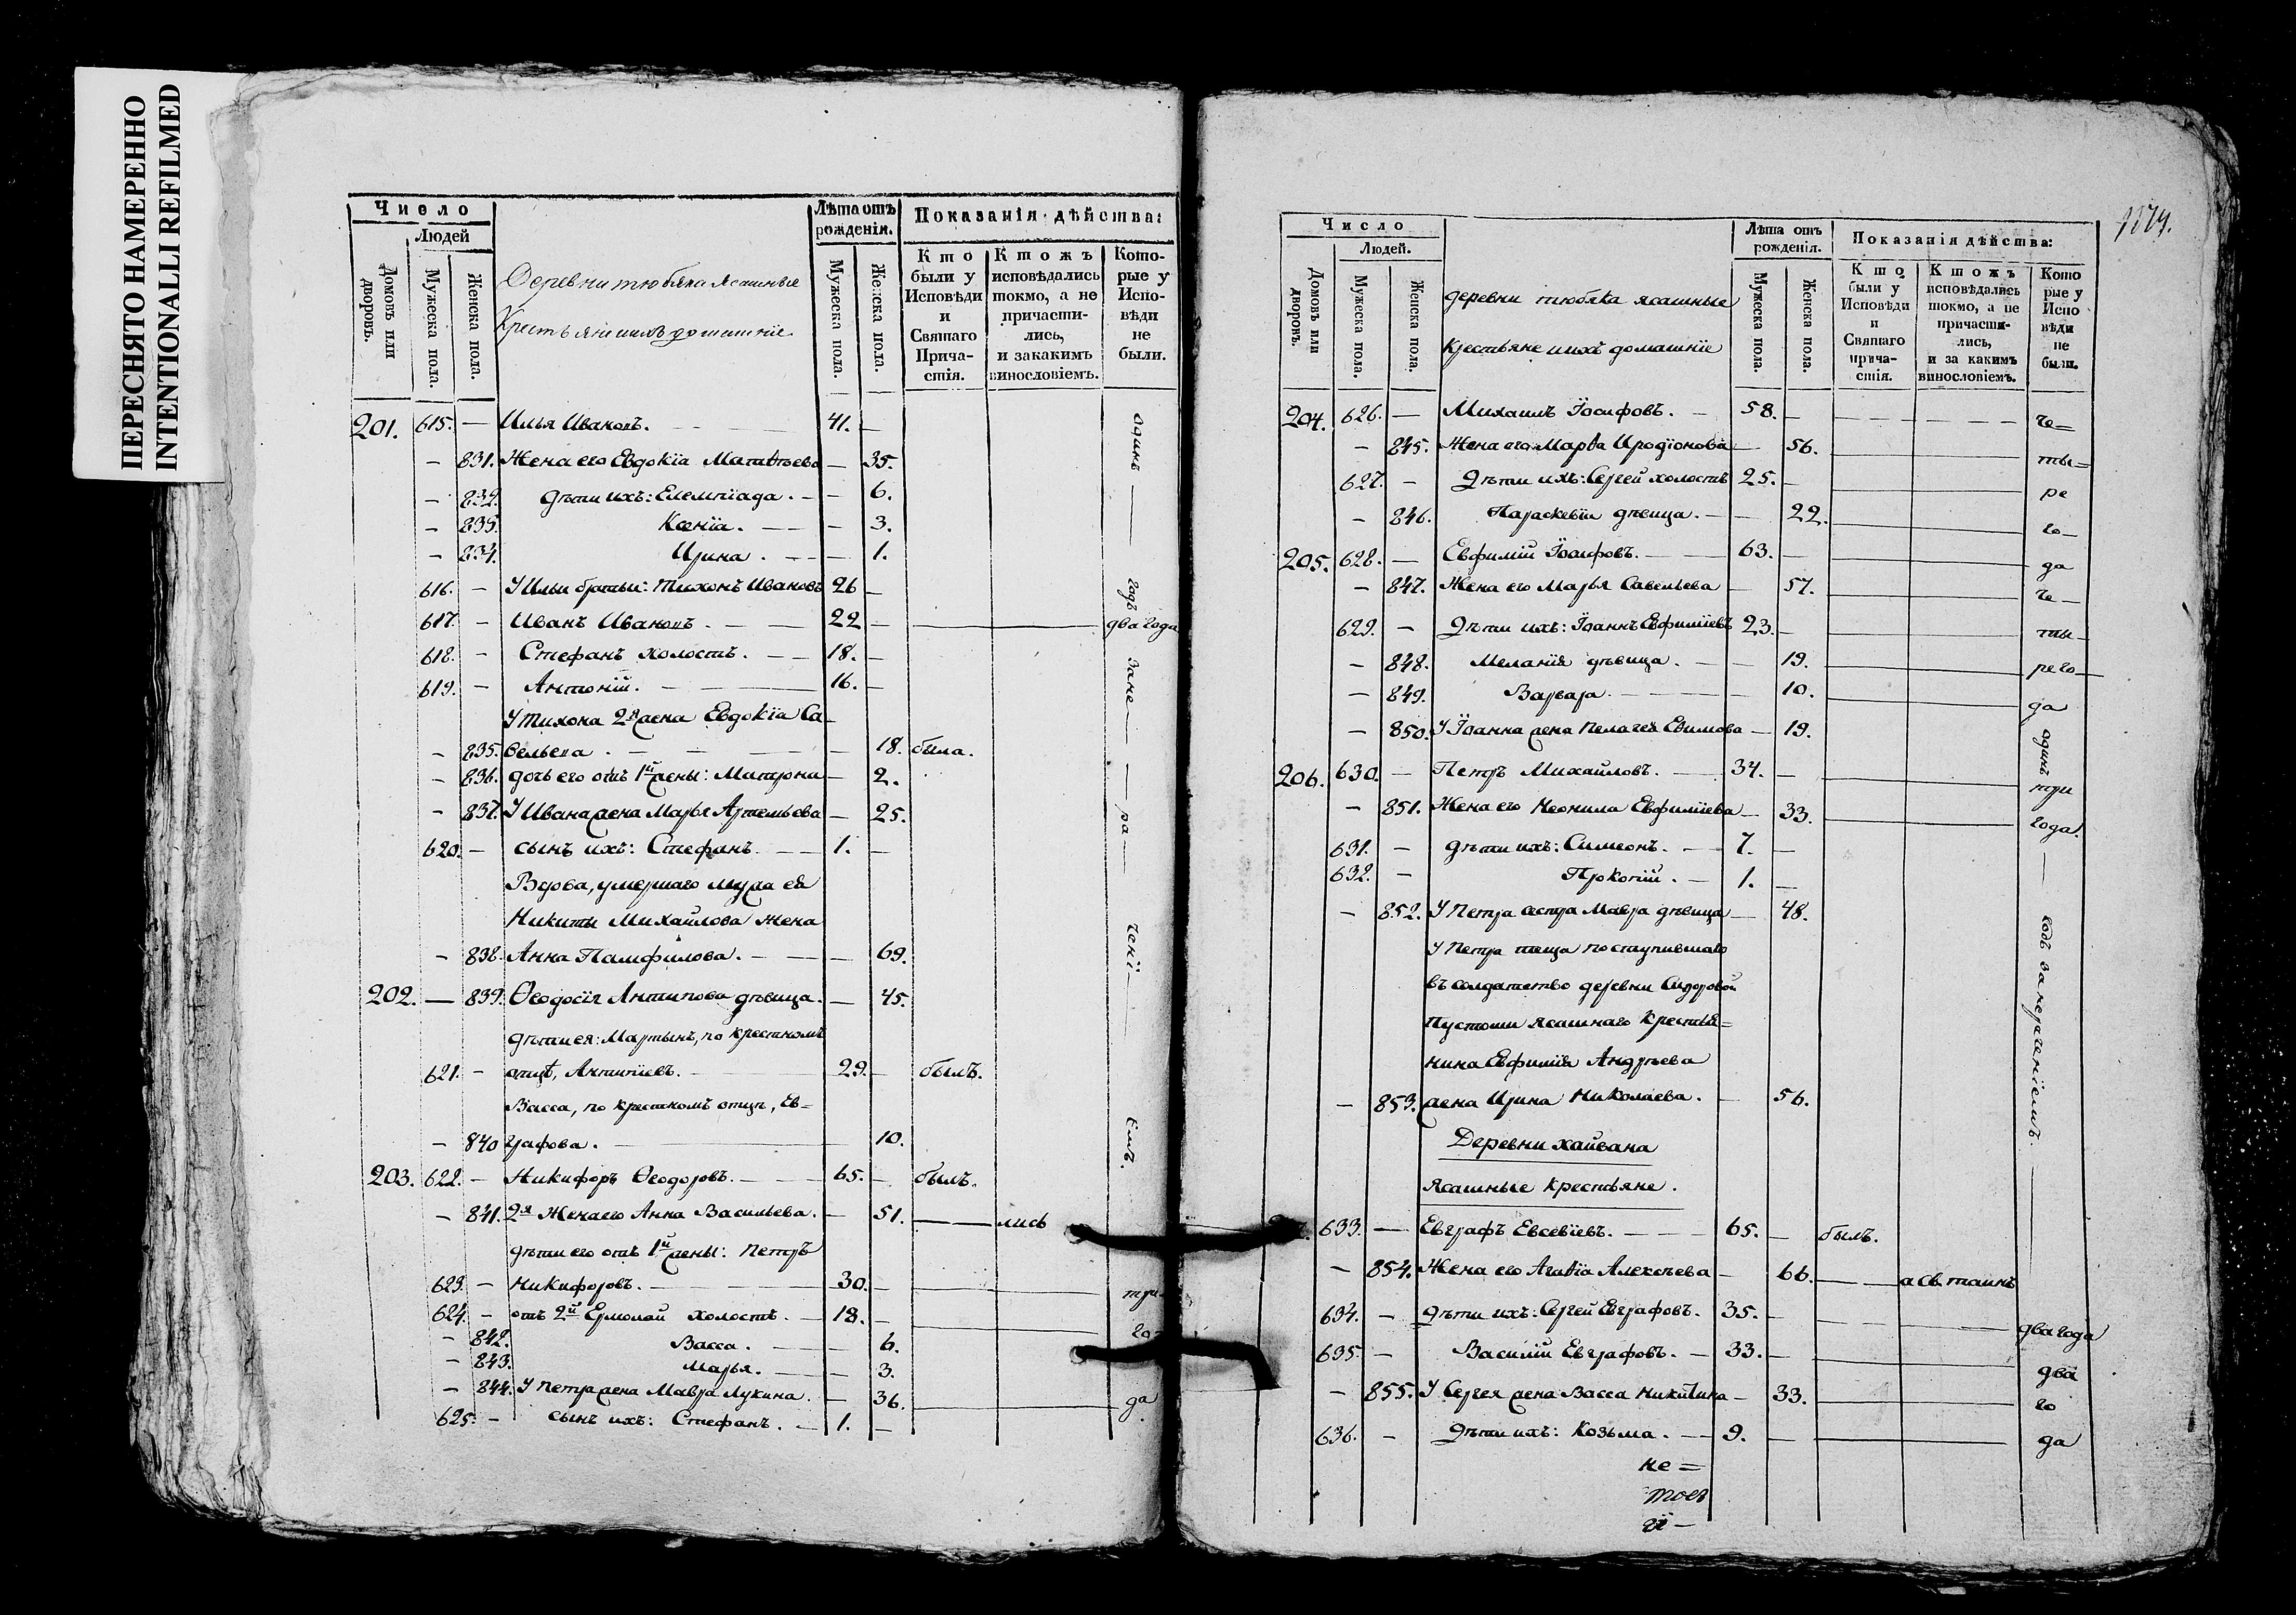 ПЕРЕСНЯТО НАМЕРЕННО
INTENTIONALLI REFILMED
Число
Людей
Домовъ или дворовъ.
Мужеска пола.
Женска пола.
Деревни тюбяка ясашные
Крестьяне и ихъ домашніе
Лѣта отъ рожденія.
Мужеска пола.
Женска пола.
Показанія дѣйства:
Кто были у Исповѣди и Святаго Прича-стія.
Ктожъ исповѣдались токмо, а не причасти-лись, и закакимъ винословіемъ.
Кото-рые у Испо-вѣди не были.
201. 615. — Илья Ивановъ. 41. —
— 831. Жена его Евдокїа Матвѣева — 35.
— 832. Дѣти ихъ: Елемпїада. — 6.
— 833. Ксенїа. — 3.
— 834. Ирина. — 1.
616. — У Ильи братьи: Тихонъ Ивановъ 26 —
617. — Иванъ Ивановъ. 22 — два года
618. — Стефанъ холостъ. 18. —
619. — Антонїй. 16. —
У Тихона 2я жена Евдокїа Са-
— 835. вельева. — 18. была.
— 836. дочь его отъ 1й жены: Матрона — 2.
— 837. У Ивана жена Марья Артемьева — 25.
620. — сынъ ихъ: Стефанъ. 1. —
Вдова, умершаго мужа ея
Никиты Михайлова жена
— 838. Анна Памфилова. — 69.
202. — 839. Ѳеодосїя Антипова дѣвица. — 45.
дѣти ея: Мартынъ, по крестномъ
621. — отцѣ, Антипїевъ. 29. — былъ.
Васса, по крестномъ отцѣ, Ев=
— 840 графова. — 10.
203. 622. — Никифоръ Ѳеодоровъ. 65. — былъ.
— 841. 2я Жена его Анна Васильева. — 51. — лись
дѣти его отъ 1й жены: Петръ
623. — Никифоровъ. 30. — три
624. — отъ 2й Ермолай холостъ. 18. — го-
— 842. Васса. — 6.
— 843. Марья. — 3.
— 844. У Петра жена Мавра Лукина. — 36. да
625. — сынъ ихъ: Стефанъ. 1. —
одинъ — годъ зане — ра — ченї — емъ.
1074.
Число
Людей.
Домовъ или дворовъ.
Мужеска пола.
Женска пола.
деревни тюбяка ясашные
крестьяне и ихъ домашніе
Лѣта отъ рожденія.
Мужеска пола.
Женска пола.
Показанія дѣйства:
Кто были у Исповѣди и Святаго прича-стія.
Ктожъ исповѣдались токмо, а не причасти-лись, и за какимъ винословіемъ.
Кото рые у Испо вѣди не были.
204. 626. — Михаилъ Їосифовъ. 58. — че=
— 845. Жена его Марѳа Иродїонова — 56. ты=
627. — Дѣти ихъ: Сергей холостъ 25. — ре
— 846. Параскевїа дѣвица. — 22. го—
205. 628. — Евфимїй Їосифовъ. 63. — да
— 847. Жена его Марья Савельева — 57. че—
629. — Дѣти ихъ: Їоаннъ Евфимїевъ 23. — ты—
— 848. Меланїя дѣвица. — 19. ре го—
— 849. Варвара. — 10. да
— 850. У Їоанна жена Пелагея Ефимова — 19. одинъ
206. 630. — Петръ Михайловъ. 34. — три
— 851. Жена его Неонила Евфимїева — 33. года.
631. — дѣти ихъ: Симеонъ. 7. —
632. — Прокопїй. 1. —
— 852. У Петра сестра Мавра дѣвица — 48.
У Петра теща поступившаго
въ солдатство деревни Сидоровой
Пустоши ясашнаго крестья=
нина Евфимїя Андрѣева
— 853. жена Ирина Николаева. — 56.
годъ за нераченїемъ.
Деревни хайвана
Ясашные крестьяне.
633. — Евграфъ Евсевїевъ. 65. — былъ.
— 854. Жена его Агаѳїа Алексѣева — 66. — а св. таинъ
634. — дѣти ихъ: Сергей Евграфовъ. 35. — два года
635. — Василїй Евграфовъ. 33. — два
— 855. У Сергея жена Васса Никитина — 33. го
636. — Дѣти ихъ: Козьма. 9. — да
не=